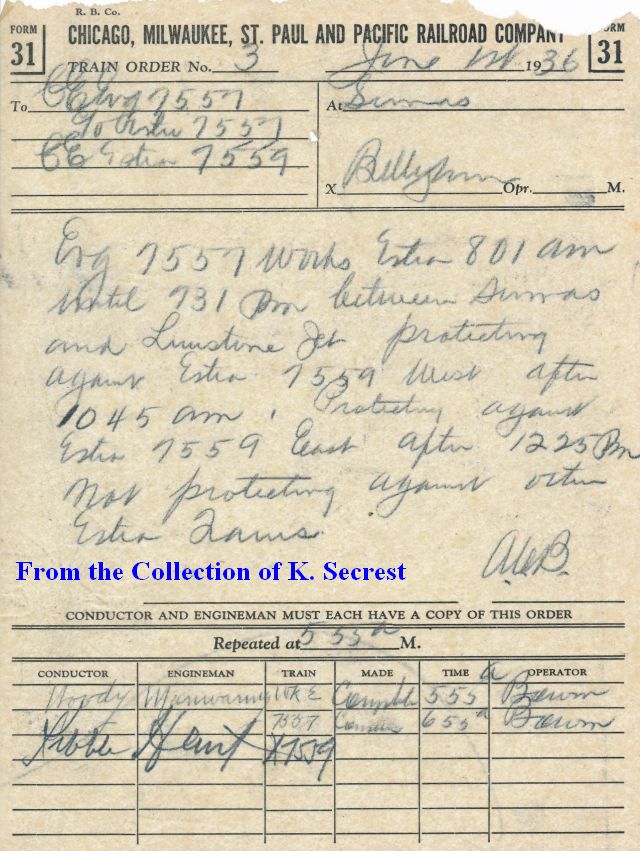 R. B. Co.
FORM 31
CHICAGO, MILWAUKEE, ST. PAUL AND PACIFIC RAILROAD COMPANY
FORM 31
TRAIN ORDER No. 3 June 1st 1936
To C&E Eng 7557 At Sumas
7557
C&E Extra 7559
X Bellingham Opr. M.
Eng 7557 Works Extra 801 am
until 731 Pm between Sumas
and Limestone Jct protecting
against Extra 7559 West after
1045 am . Protecting against
Extra 7559 East after 1225 Pm
Not protecting against other
Extra Trains.
From the Collection of K. Secrest
CONDUCTOR AND ENGINEMAN MUST EACH HAVE A COPY OF THIS ORDER
Repeated at 555 a M.
CONDUCTOR ENGINEMAN TRAIN MADE TIME OPERATOR
Woody Manwaring Wk E Complete 555 a Bown
7557 655 a Bown
X7559